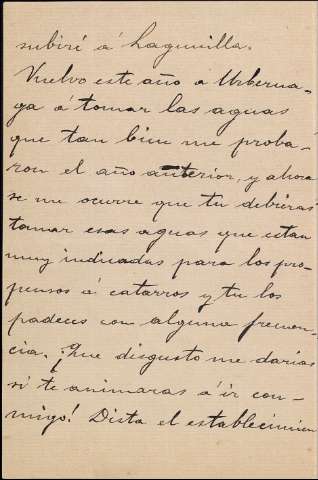 subiré á Lagunilla.
Vuelvo este año á Urberua-
ga á tomar las aguas
que tan bien me proba-
ron el año anterior, y ahora
se me ocurre que tu debieras
tomar esas aguas que estan
muy indicadas para los pro-
pensos á catarros y tu los
padeces con alguna frecuen-
cia. ¡Que disgusto me darias
si te animaras á ir con-
migo! Dista el establecimien